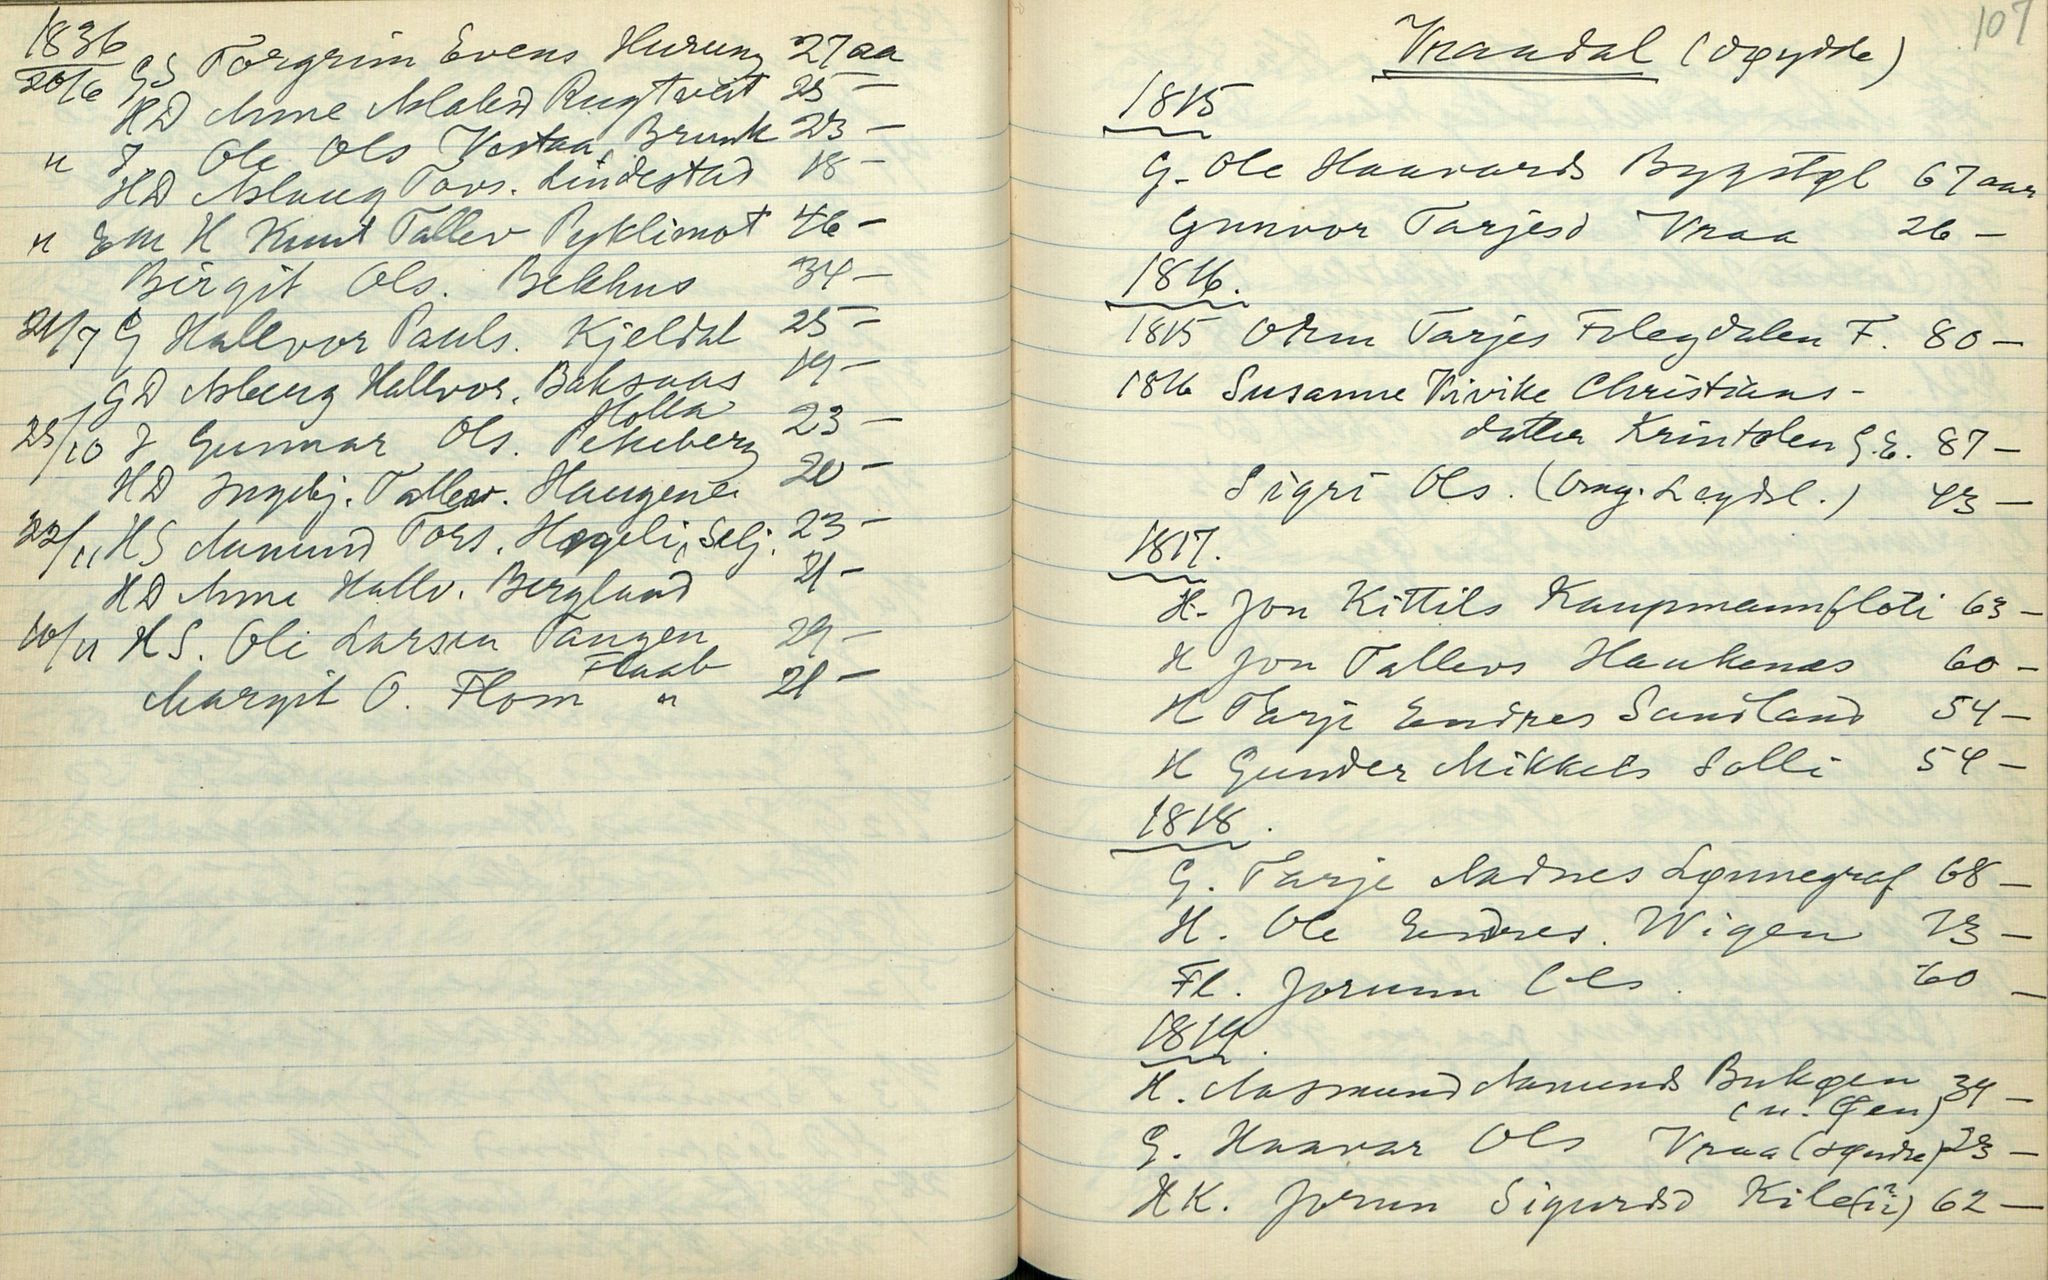 1836
20/6 GS Torgrim Evens Hurung 27 aa
HD Anne Aslaksd Rugtveit 25 –
" J Ole Ols Vestaa, Brunk 23 –
HD Aslaug Tovs. Lindestad 18 –
" Em H Knut Tallev Pyklimot 46 –
Birgit Ols. Bekhus 34 –
21/7 G Hallvor Pauls. Kjeldal 25 –
GD Asberg Hallvor. Baksaas 19 –
Holla
23/10 J Gunnar Ols. Pekeberg 23 –
HD Ingebj. Tallev. Haugene 20 –
22/11 HS Aamund Tors. Hægeli, Selj. 23 –
HD Anne Hallv. Bergland 21 –
10/11 HS. Oli Larsen Tangen 29 –
Flaab
Margit O. Flom " 21 –
107
Vraadal (døydde)
1815
G. Ole Haavards Bygstøl 67 aar
Gunvor Tarjesd Vraa 26 –
1816.
1815 Orm Tarjes Fleydalen F. 80 –
1816 Susanne Vivike Christians-
datter Krintolen G.E. 87 –
Sigri Ols. (Omg. Legdsl.) 43 –
1817.
H. Jon Kittils Kaupmannfloti 63 –
H Jon Tallevs Haukenes 60 –
H Tarje Endres Sundland 54 –
H Gunder Mikkels Solli 54 –
1818.
G. Tarje Aadnes Lønnegrav 68 –
H. Ole Endres. Wigen 73 –
Fl. Jorunn Ols. 60 –
1819.
H. Aasmund Aamunds Bukøen 34 –
(n. Øen)
G. Haavar Ols Vraa (søndre) 23 –
HK. Jorun Sigurdsd Kile 62 –